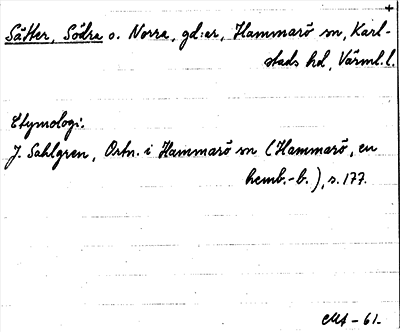 +
Sätter, Södra o. Norra, gd:ar, Hammarö sn, Karl-
stads hd, Värml.l.
Etymologi:
J. Sahlgren, Ortn. i Hammarö sn (Hammarö, en
hemb.-b.), s. 177.
EMt - 61.